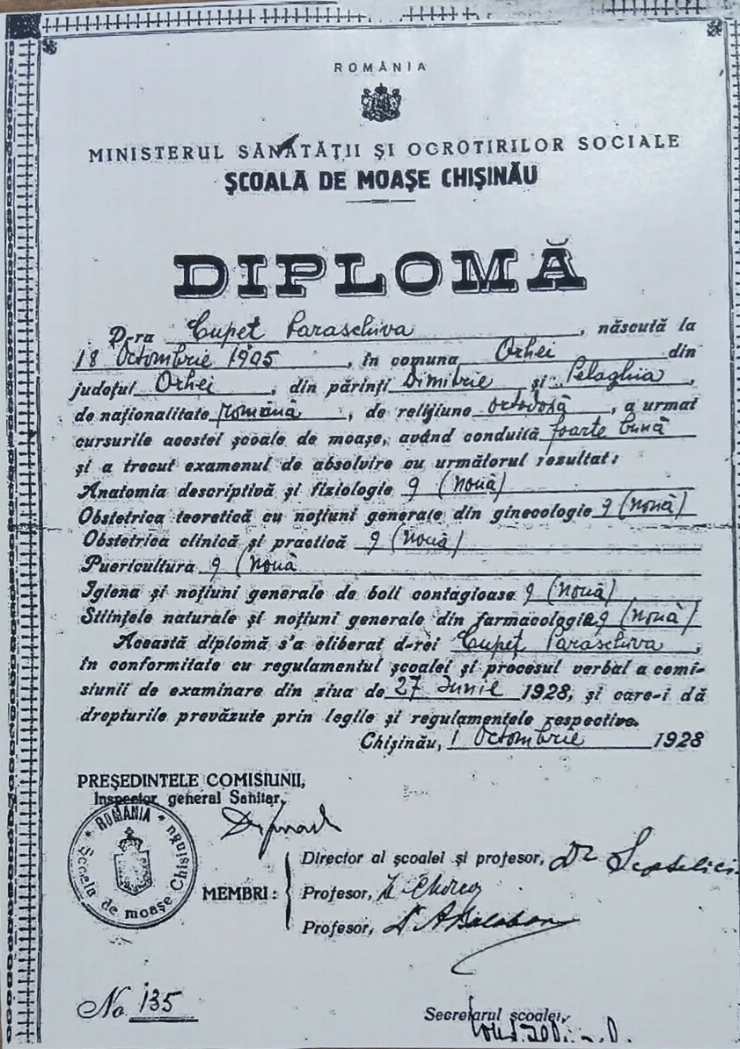 ROMÂNIA
MINISTERUL SĂNĂTĂȚII ȘI OCROTIRILOR SOCIALE
ȘCOALA DE MOAȘE CHIȘINĂU
DIPLOMĂ
D-ra Cupeț Paraschiva, născută la
18 Octombrie 1905, în comuna Orhei din
județul Orhei, din părinți Dimitrie și Pelaghia,
de naționalitate română, de religiune ortodoxă, a urmat
cursurile acestei școale de moașe, având conduită foarte bună
și a trecut examenul de absolvire cu următorul rezultat:
Anatomia descriptivă și fiziologie 9 (nouă)
Obstetrica teoretică cu noțiuni generale din ginecologie 9 (nouă)
Obstetrica clinică și practică 9 (nouă)
Puericultura 9 (nouă
Igiena și noțiuni generale de boli contagioase 9 (nouă)
Stiințele naturale și noțiuni generale din farmacologie 9 (nouă)
Această diplomă s'a eliberat d-rei Cupeț Paraschiva,
în conformitate cu regulamentul școalei și procesul verbal a comi-
siunii de examinare din ziua de 27 Iunie 1928, și care-i dă
drepturile prevăzute prin legile și regulamentele respective.
Chișinău, 1 Octombrie 1928
PREȘEDINTELE COMISIUNII,
Inspector general Sanitar,
ROMANIA
Școala de moașe Chișinău
MEMBRI:
Director al școalei și profesor, Dr
Profesor,
Profesor, Dr A Balaban
No 135
Secretarul școalei,